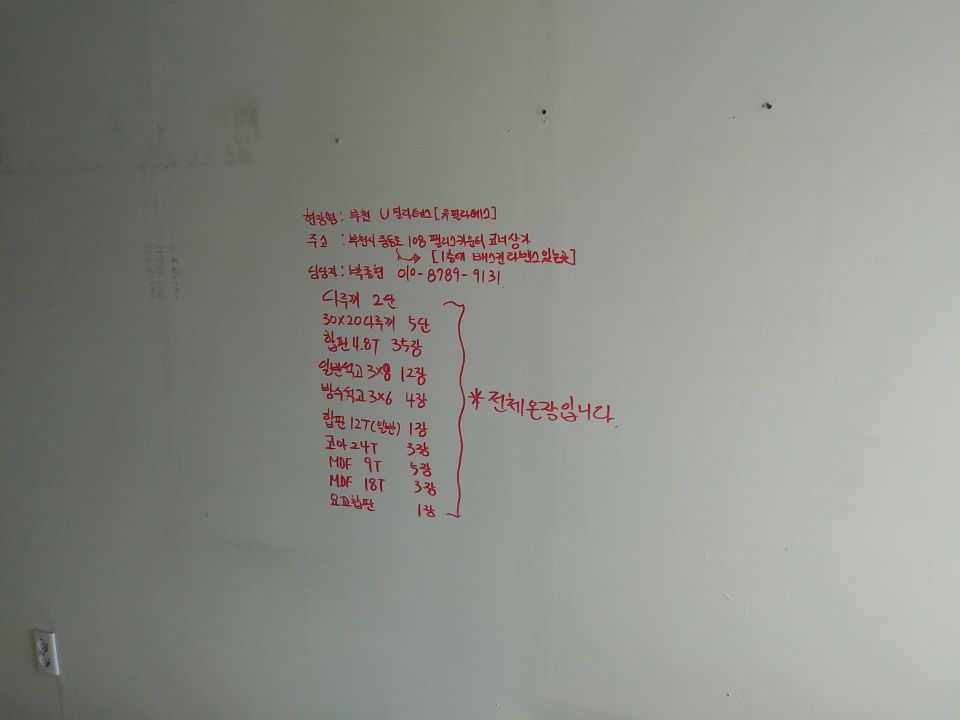 현장명: 부천 U 필라테스 [유필라테스]
주소 : 부천시 중동로 108 팰리스카운티 코너상가
[1층에 배스킨라빈스있는곳]
담당자: 박종현 010-8789-9131
다루끼 2단
30x20다루끼 5단
합판 4.8T 35장
일반석고 3x8 12장
방수석고 3x6 4장
* 전체온장입니다.
합판 12T(일반) 1장
코아 24T 3장
MDF 9T 5장
MDF 18T 3장
요꼬합판 1장